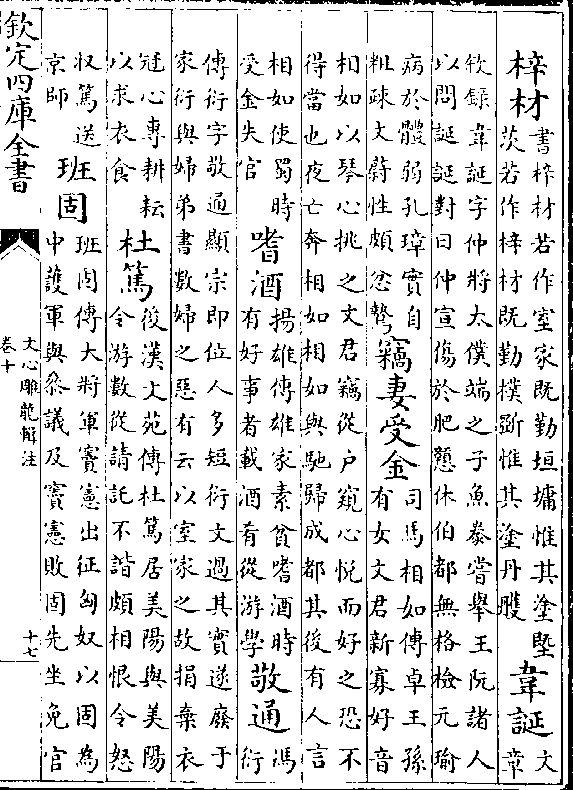 梓材
書梓材若作室家既勤垣墉惟其塗塈
茨若作梓材既勤樸斵惟其塗丹雘
韋誕
文
章
敘錄韋誕字仲將太僕端之子魚豢嘗舉王阮諸人
以問誕誕對曰仲宣傷於肥戇休伯都無格檢元瑜
病於體弱孔璋實自
粗疎文蔚性頗忿鷙
竊妻受金
司馬相如傳卓王孫
有女文君新寡好音
相如以琴心挑之文君竊從户窺心悦而好之恐不
得當也夜亡奔相如相如與馳歸成都其後有人言
相如使蜀時
受金失官
嗜酒
揚雄傳雄家素貧嗜酒時
有好事者載酒肴從游學
敬通
馮
衍
傳衍字敬通顯宗即位人多短衍文過其實遂廢于
家衍與婦弟書數婦之惡有云以室家之故捐棄衣
冠心專耕耘
以求衣食
杜篤
後漢文苑傳杜篤居美陽與美陽
令游數從請託不諧頗相恨令怒
收篤送
京師
班固
班固傳大將軍竇憲出征匈奴以固為
中護軍與叅議及竇憲敗固先坐免官
欽定四庫全書
文心雕龍輯注
卷十
十七